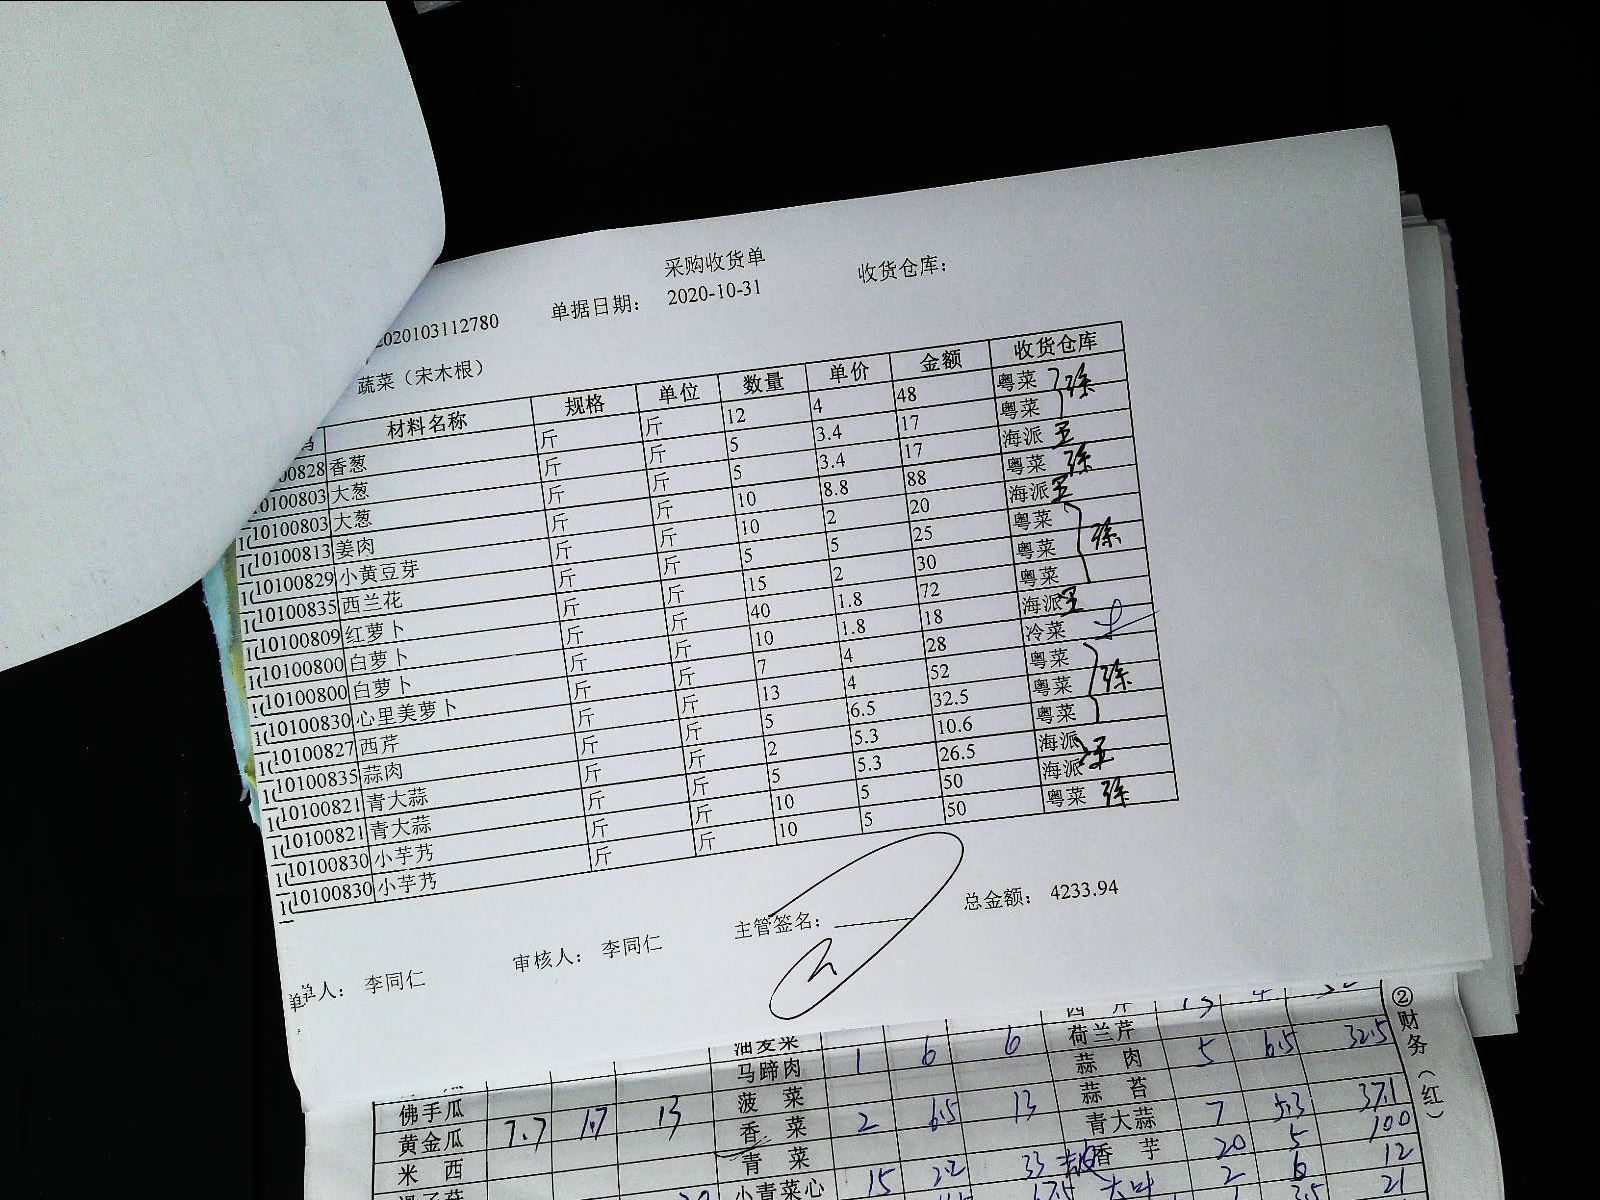 采购收货单
2020103112780 单据日期： 2020-10-31 收货仓库：
蔬菜（宋木根）
材料名称 规格 单位 数量 单价 金额 收货仓库
00828 香葱 斤 斤 12 4 48 粤菜 徐
0100803 大葱 斤 斤 5 3.4 17 粤菜
10100803 大葱 斤 斤 5 3.4 17 海派 王
10100813 姜肉 斤 斤 10 8.8 88 粤菜 徐
10100829 小黄豆芽 斤 斤 10 2 20 海派 王
10100835 西兰花 斤 斤 5 5 25 粤菜
10100809 红萝卜 斤 斤 15 2 30 粤菜 徐
10100800 白萝卜 斤 斤 40 1.8 72 粤菜
10100800 白萝卜 斤 斤 10 1.8 18 海派 王
10100830 心里美萝卜 斤 斤 7 4 28 冷菜
10100827 西芹 斤 斤 13 4 52 粤菜
10100835 蒜肉 斤 斤 5 6.5 32.5 粤菜 徐
10100821 青大蒜 斤 斤 2 5.3 10.6 粤菜
10100821 青大蒜 斤 斤 5 5.3 26.5 海派 王
10100830 小芋艿 斤 斤 10 5 50 海派
10100830 小芋艿 斤 斤 10 5 50 粤菜 徐
单人： 李同仁 审核人： 李同仁 主管签名： 总金额： 4233.94
油麦菜 西 芹 13 4
马蹄肉 1 6 6 荷兰芹
佛手瓜 菠 菜 蒜 肉 5 6.5 32.5
黄金瓜 7.7 1.7 13 香 菜 2 6.5 13 蒜 苔
米 西 青 菜 青大蒜 7 5.3 37.1
小青菜心 15 2.2 33 香 芋 20 5 100
大叶 2 6 12
3.5 21
②财务（红）